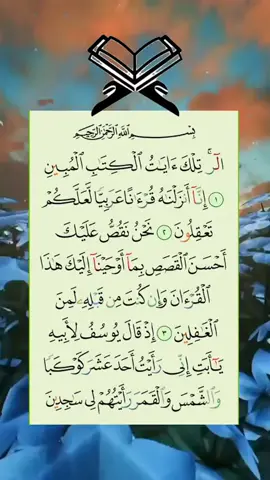 بِسْمِ اللَّهِ الرَّحْمَٰنِ الرَّحِيمِ
الٓر ۚ تِلْكَ ءَايَٰتُ ٱلْكِتَٰبِ ٱلْمُبِينِ
١ إِنَّآ أَنزَلْنَٰهُ قُرْءَٰنًا عَرَبِيًّا لَّعَلَّكُمْ
تَعْقِلُونَ ٢ نَحْنُ نَقُصُّ عَلَيْكَ
أَحْسَنَ ٱلْقَصَصِ بِمَآ أَوْحَيْنَآ إِلَيْكَ هَٰذَا
ٱلْقُرْءَانَ وَإِن كُنتَ مِن قَبْلِهِۦ لَمِنَ
ٱلْغَٰفِلِينَ ٣ إِذْ قَالَ يُوسُفُ لِأَبِيهِ
يَٰٓأَبَتِ إِنِّى رَأَيْتُ أَحَدَ عَشَرَ كَوْكَبًا
وَٱلشَّمْسَ وَٱلْقَمَرَ رَأَيْتُهُمْ لِى سَٰجِدِينَ